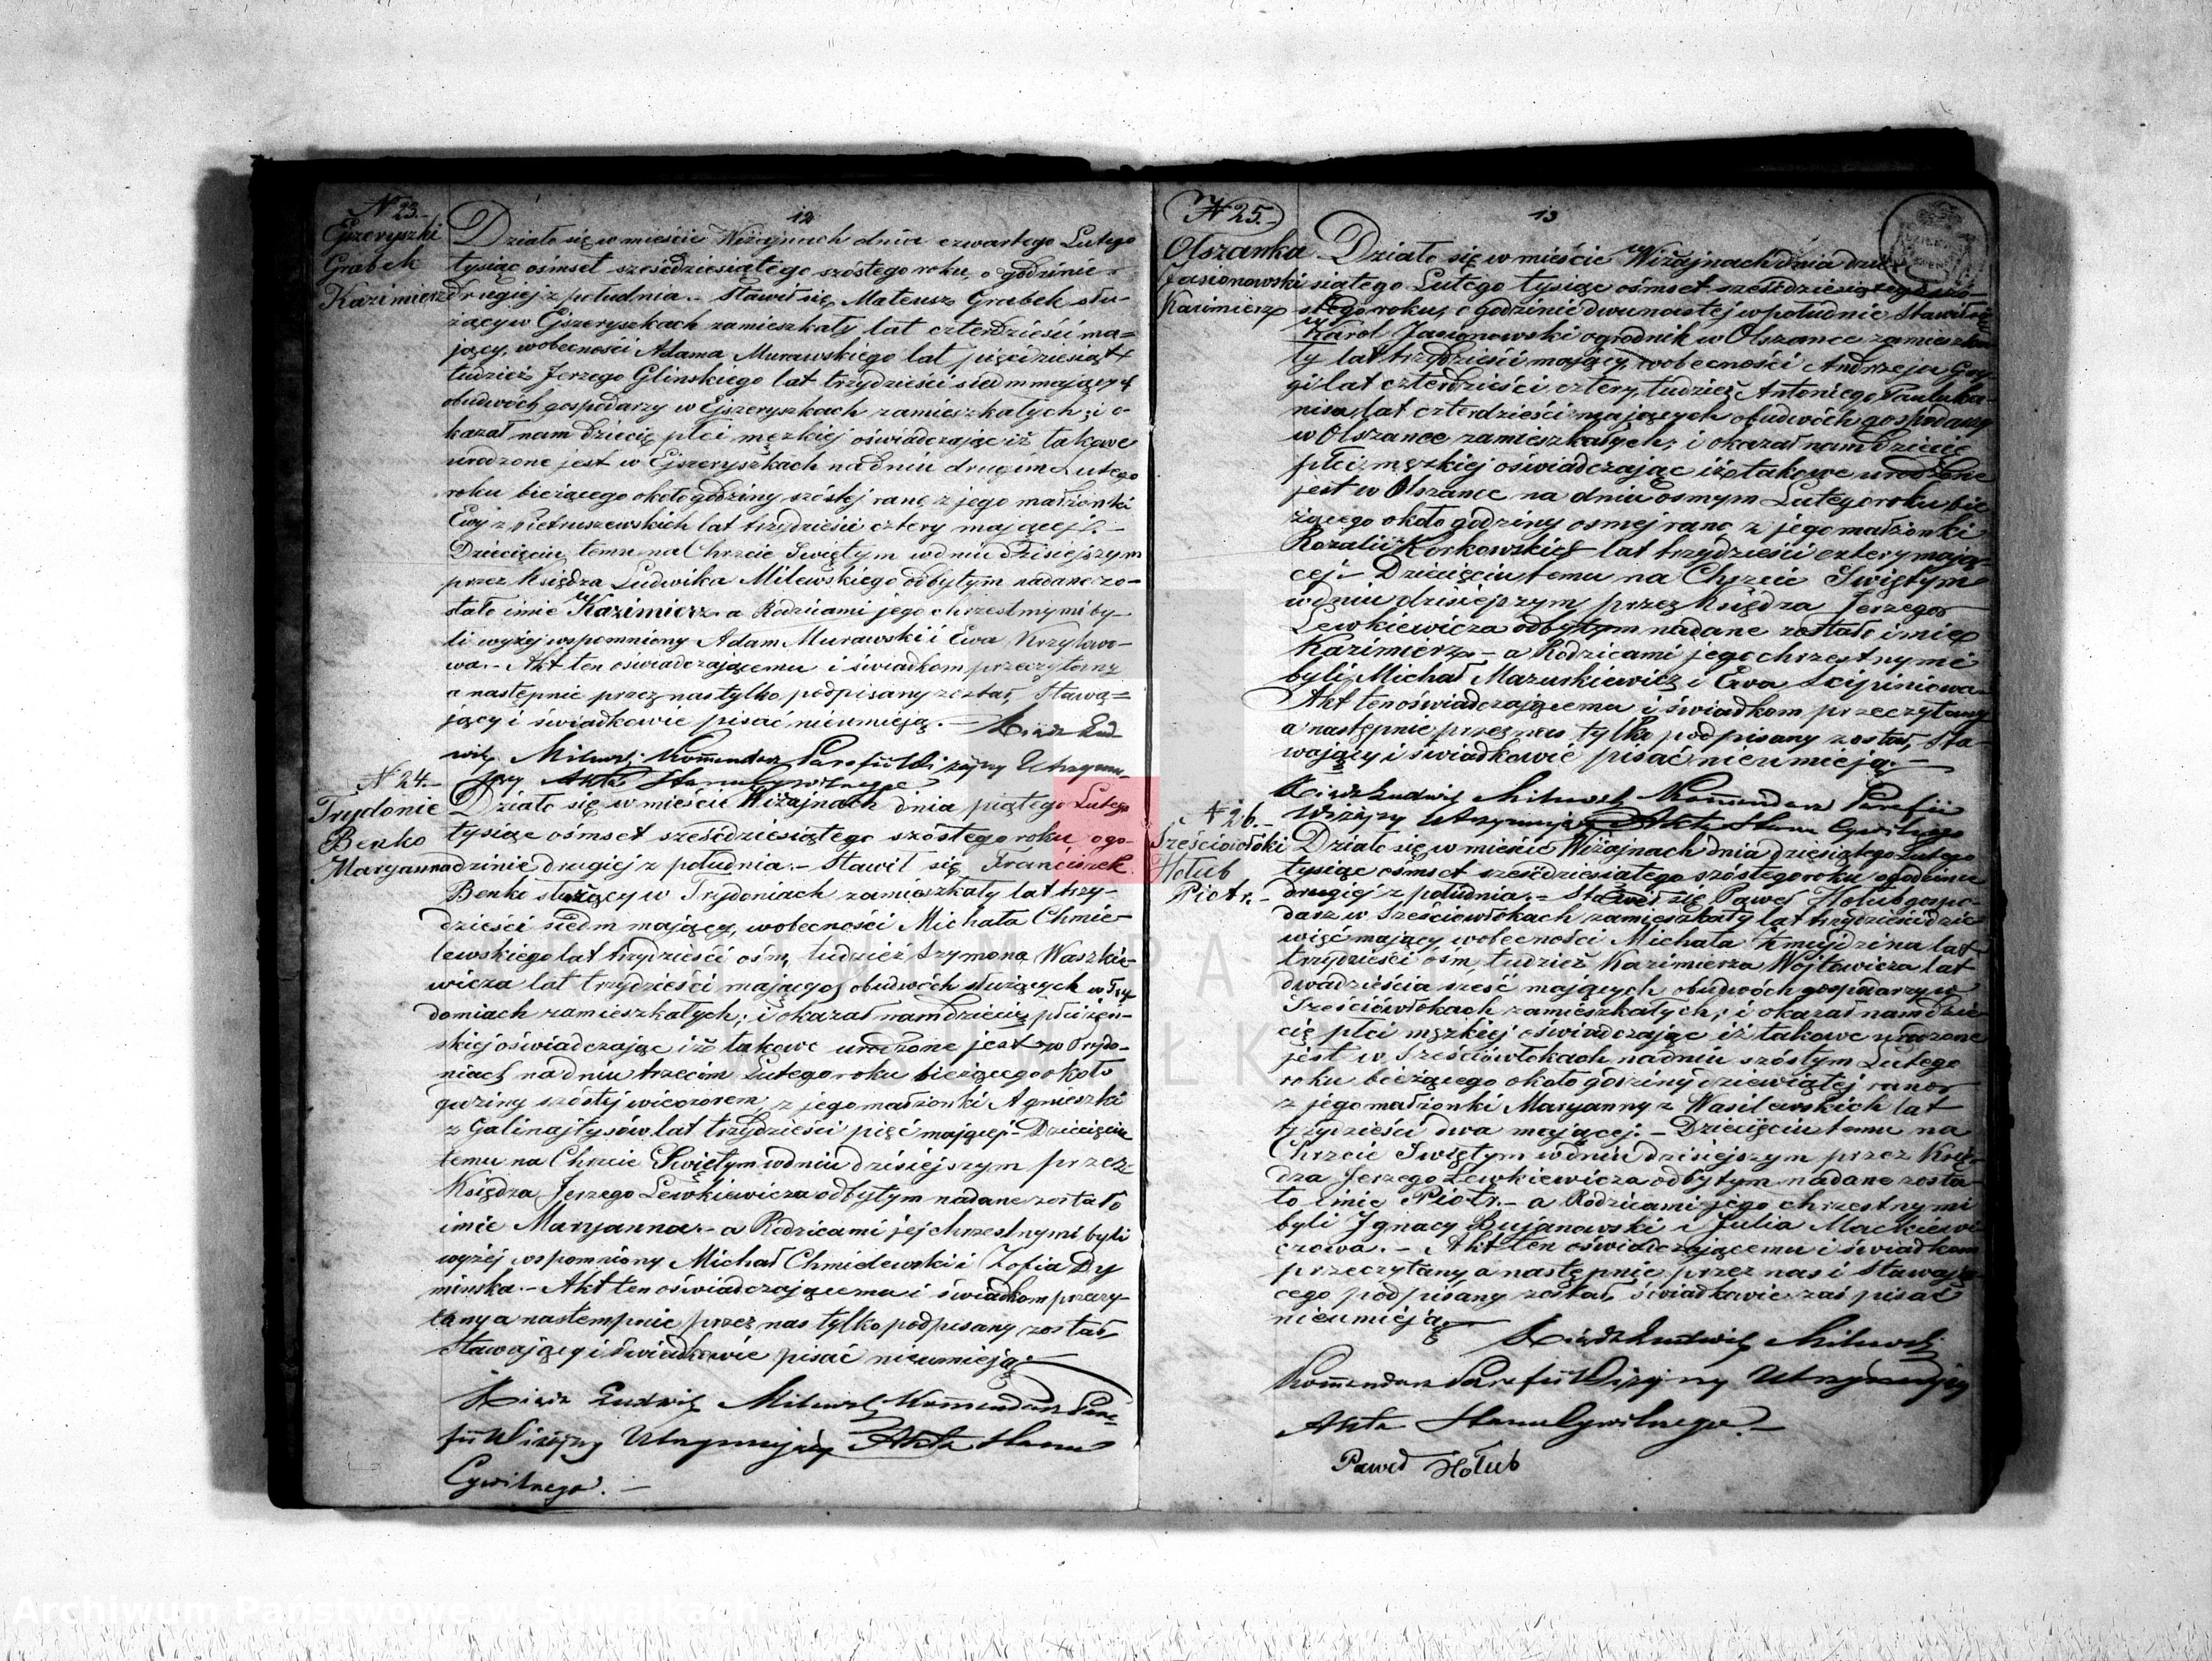 12
N 23.
Ejszeryszki
Grabek
Kazimierz
Działo się w mieście Wiżajnach dnia czwartego Lutego
tysiąc ośmset sześćdziesiątego szóstego roku, o godzinie
drugiej z południa. Stawił się Mateusz Grabek słu-
żący w Ejszeryszkach zamieszkały lat czterdzieści ma=
jący, w obecności Adama Murawskiego lat pięćdziesiąt
tudzież Jerzego Glinskiego lat trzydzieści siedm mających
obudwóch gospodarzy w Ejszeryszkach zamieszkałych; i o-
kazał nam dziecię płci męzkiej oświadczając iż takowe
urodzone jest w Ejszeryszkach na dniu drugim Lutego
roku bieżącego około godziny szóstej rano z jego małżonki
Ewy z Pietruszewskich lat trzydzieści cztery mającej. -
Dziecięciu temu na Chrzcie Świętym w dniu dzisiejszym
przez Księdza Ludwika Milewskiego odbytym nadane zo-
stało imie Kazimierz a Rodzicami jego chrzestnymi by-
li wyżej wspomniony Adam Murawski i Ewa Krzyłowo-
wa. - Akt ten oświadczającemu i świadkom przeczytany
a następnie przez nas tylko podpisany został, Stawa=
jący i świadkowie pisać nieumieją. - Xiądz Lud-
wik Milewski Kommendarz Parafii Wiżajny Utrzymu-
jący Akta Stanu Cywilnego
N 24.
Trydonie
Benko
Maryanna
Działo się w mieście Wiżajnach dnia piątego Lutego
tysiąc ośmset sześćdziesiątego szóstego roku, o go-
dzinie drugiej z południa. - Stawił się Franciszek
Benko służący w Trydoniach zamieszkały lat trzy-
dzieści siedm mający, w obecności Michała Chmie-
lewskiego lat trzydzieści ośm, tudzież Szymona Waszkie-
wicza lat trzydzieści mającego obudwóch służących w Try
doniach zamieszkałych; i okazał nam dziecię płci żeń-
skiej oświadczając iż takowe urodzone jest w Trydo-
niach na dniu trzecim Lutego roku bieżącego około
godziny szóstej wieczorem z jego małżonki Agnieszki
z Galinajtysów lat trzydzieści pięć mającej - Dziecięciu
temu na Chrzcie Świętym w dniu dzisiejszym przez
Księdza Jerzego Lewkiewicza odbytym nadane zostało
imie Maryanna. - a Rodzicami jej chrzestnymi byli
wyżej wspomniony Michał Chmielewski i Zofia Dy
minska. - Akt ten oświadczającemu i świadkom przeczy-
tany a nastempnie przez nas tylko podpisany został,
Stawający i Świadkowie pisać nieumieją. -
Xiądz Ludwik Milewski Kommendarz Para-
fii Wiżajny Utrzymujący Akta Stanu
Cywilnego. -
13
N 25.
Olszanka
Jasionowski
Kazimierz
Działo się w mieście Wiżajnach dnia dzie
siątego Lutego tysiąc ośmset sześćdziesiątego szó-
stego roku, o godzinie dwunastej w południe Stawił się
Karol Jasionowski ogrodnik w Olszance zamieszka
ły lat trzydzieści mający, w obecności Andrzeja
gi lat czterdzieści cztery, tudzież Antoniego Pauluka-
nisa lat czterdzieści mających obudwóch gospodarzy
w Olszance zamieszkałych; i okazał nam dziecię
płci męzkiej oświadczając iż takowe urodzone
jest w Olszance na dniu ósmym Lutego roku bie
żącego około godziny ósmej rano z jego małżonki
Rozalii z Korkowskich lat trzydzieści cztery mają-
cej - Dziecięciu temu na Chrzcie Świętym
w dniu dzisiejszym przez Księdza Jerzego
Lewkiewicza odbytym nadane zostało imie
Kazimierz - a Rodzicami jego chrzestnymi
byli Michał Mazurkiewicz i Ewa Scypiniowa
Akt ten oświadczającemu i świadkom przeczytany
a następnie przez nas tylko podpisany został, Sta-
wający i świadkowie pisać nieumieją. -
Xiądz Ludwik Milewski Kommendarz Parafii
Wiżajny Utrzymujący Akta Stanu Cywilnego
N 26.
Sześciowłóki
Hołub
Piotr. -
Działo się w mieście Wiżajnach dnia dziesiątego Lutego
tysiąc ośmset sześćdziesiątego szóstego roku o godzinie
drugiej z południa. - Stawił się Paweł Hołub gospo-
darz w Sześciowłókach zamieszkały lat trzydzieści dzie
więć mający w obecności Michała Żmujdzina lat
trzydzieści ośm, tudzież Kazimierza Wójtowicza lat
dwadzieścia sześć mających obudwóch gospodarzy w
Sześciówłókach zamieszkałych; i okazał nam dzie-
cię płci męzkiej oświadczając iż takowe urodzone
jest w Sześciówłokach na dniu szóstym Lutego
roku bieżącego około godziny dziewiątej rano
z jego małżonki Maryanny z Wasilewskich lat
trzydzieści dwa mającej. - Dziecięciu temu na
Chrzcie Świętym w dniu dzisiejszym przez Księ-
dza Jerzego Lewkiewicza odbytym nadane zosta-
ło imie Piotr. - a Rodzicami jego chrzestnymi
byli Ignacy Bujanowski i Julia Mackiewi
czowa. - Akt ten oświadczającemu i świadkom
przeczytany a następnie przez nas i Stawają-
cego podpisany został, świadkowie zaś pisać
nieumieją
Xiądz Ludwik Milewski
Kommendarz Parafii Wiżajny Utrzymujący
Akta Stanu Cywilnego. -
Paweł Hołub
Archiwum Państwowe w Suwałkach